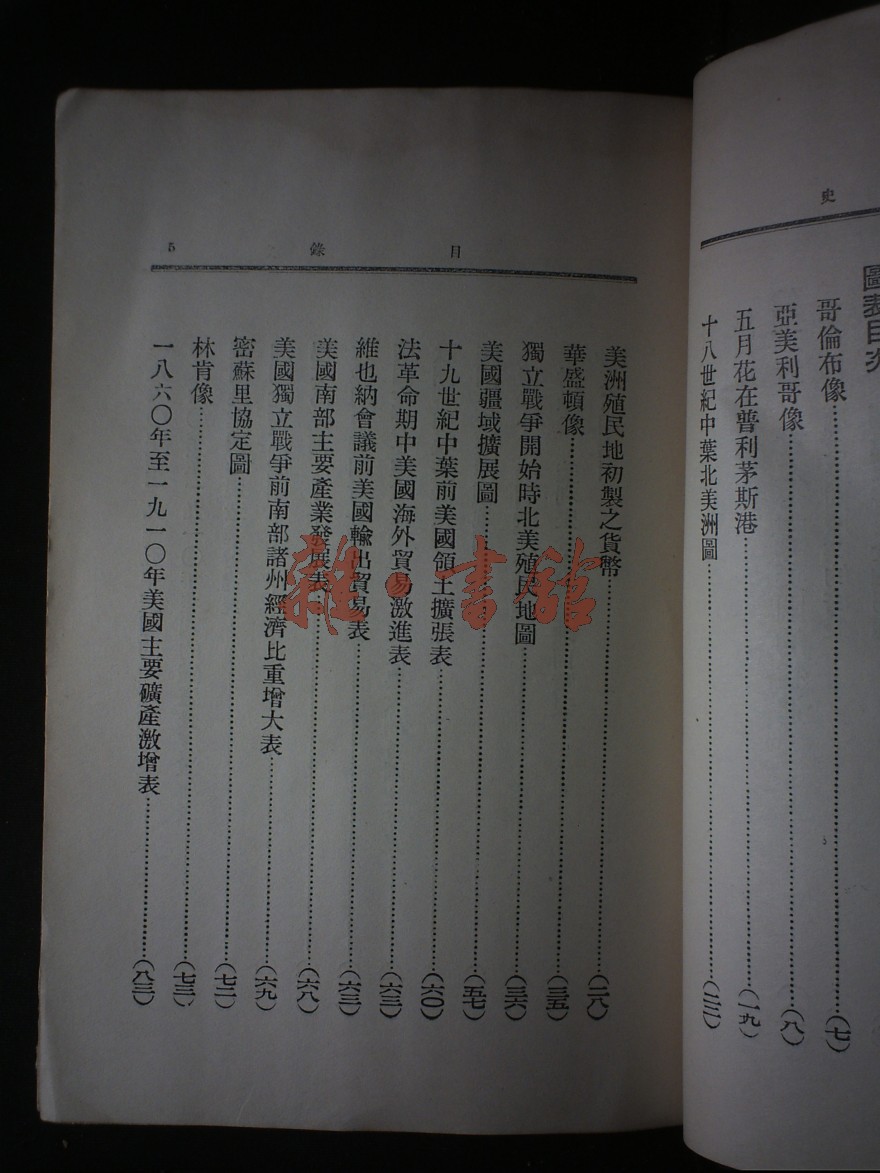 史
圖表目次
哥倫布像(七)
亞美利哥像(八)
五月花在普利茅斯港(一九)
十八世紀中葉北美洲圖(二二)
目錄 5
美洲殖民地初製之貨幣(二八)
華盛頓像(三五)
獨立戰爭開始時北美殖民地圖(三六)
美國疆域擴展圖(五七)
十九世紀中葉前美國領土擴張表(六〇)
法革命期中美國海外貿易激進表(六三)
維也納會議前美國輸出貿易表(六三)
美國南部主要產業發展表(六八)
美國獨立戰爭前南部諸州經濟比重增大表(六九)
密蘇里協定圖(七二)
林肯像(七三)
一八六〇年至一九一〇年美國主要礦產激增表(八三)
雜·書館